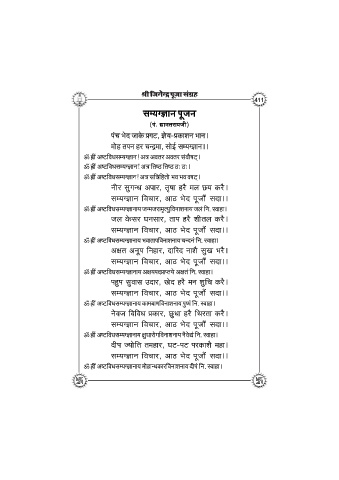 श्री जिनेन्द्र पूजा संग्रह
411
सम्यग्ज्ञान पूजन
(पं. द्यानतरायजी)
पंच भेद जाके प्रगट, ज्ञेय-प्रकाशन भान।
मोह तपन हर चन्द्रमा, सोई सम्यग्ज्ञान।।
ॐ ह्रीं अष्टविधसम्यग्ज्ञान! अत्र अवतर अवतर संवौषट्।
ॐ ह्रीं अष्टविधसम्यग्ज्ञान! अत्र तिष्ठ तिष्ठ ठः ठः।
ॐ ह्रीं अष्टविधसम्यग्ज्ञान! अत्र सन्निहितो भव भव वषट्।
नीर सुगन्ध अपार, तृषा हरै मल छय करै।
सम्यग्ज्ञान विचार, आठ भेद पूजौं सदा।।
ॐ ह्रीं अष्टविधसम्यग्ज्ञानाय जन्मजरामृत्युविनाशनाय जलं नि. स्वाहा।
जल केसर घनसार, ताप हरै शीतल करै।
सम्यग्ज्ञान विचार, आठ भेद पूजौं सदा।।
ॐ ह्रीं अष्टविधसम्यग्ज्ञानाय भवतापविनाशनाय चन्दनं नि. स्वाहा।
अक्षत अनूप निहार, दारिद नाशै सुख भरै।
सम्यग्ज्ञान विचार, आठ भेद पूजौं सदा।।
ॐ ह्रीं अष्टविधसम्यग्ज्ञानाय अक्षयपदप्राप्तये अक्षतं नि. स्वाहा।
पहुप सुवास उदार, खेद हरै मन शुचि करै।
सम्यग्ज्ञान विचार, आठ भेद पूजौं सदा।।
ॐ ह्रीं अष्टविधसम्यग्ज्ञानाय कामबाणविनाशनाय पुष्पं नि. स्वाहा।
नेवज विविध प्रकार, छुधा हरै थिरता करै।
सम्यग्ज्ञान विचार, आठ भेद पूजौं सदा।।
ॐ ह्रीं अष्टविधसम्यग्ज्ञानाय क्षुधारोगविनाशनाय नैवेद्यं नि. स्वाहा।
दीप ज्योति तमहार, घट-पट परकाशै महा।
सम्यग्ज्ञान विचार, आठ भेद पूजौं सदा।।
ॐ ह्रीं अष्टविधसम्यग्ज्ञानाय मोहान्धकारविनाशनाय दीपं नि. स्वाहा।